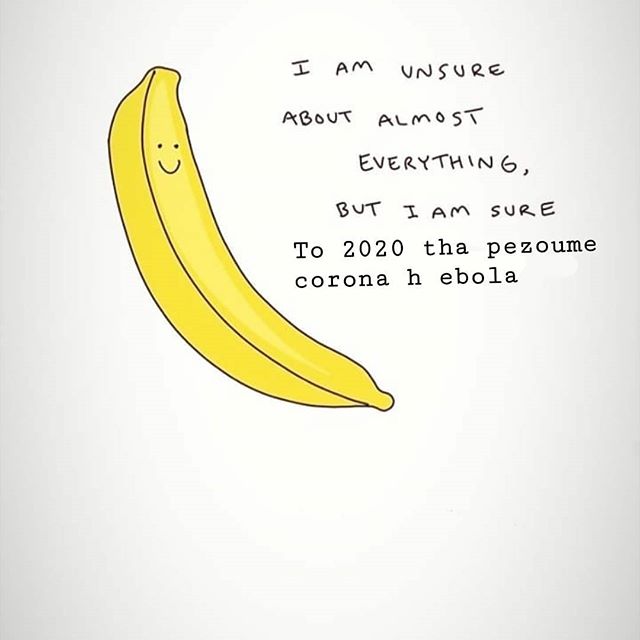 I AM UNSURE
ABOUT ALMOST
EVERYTHING,
BUT I AM SURE
To 2020 tha pezoume
corona h ebola